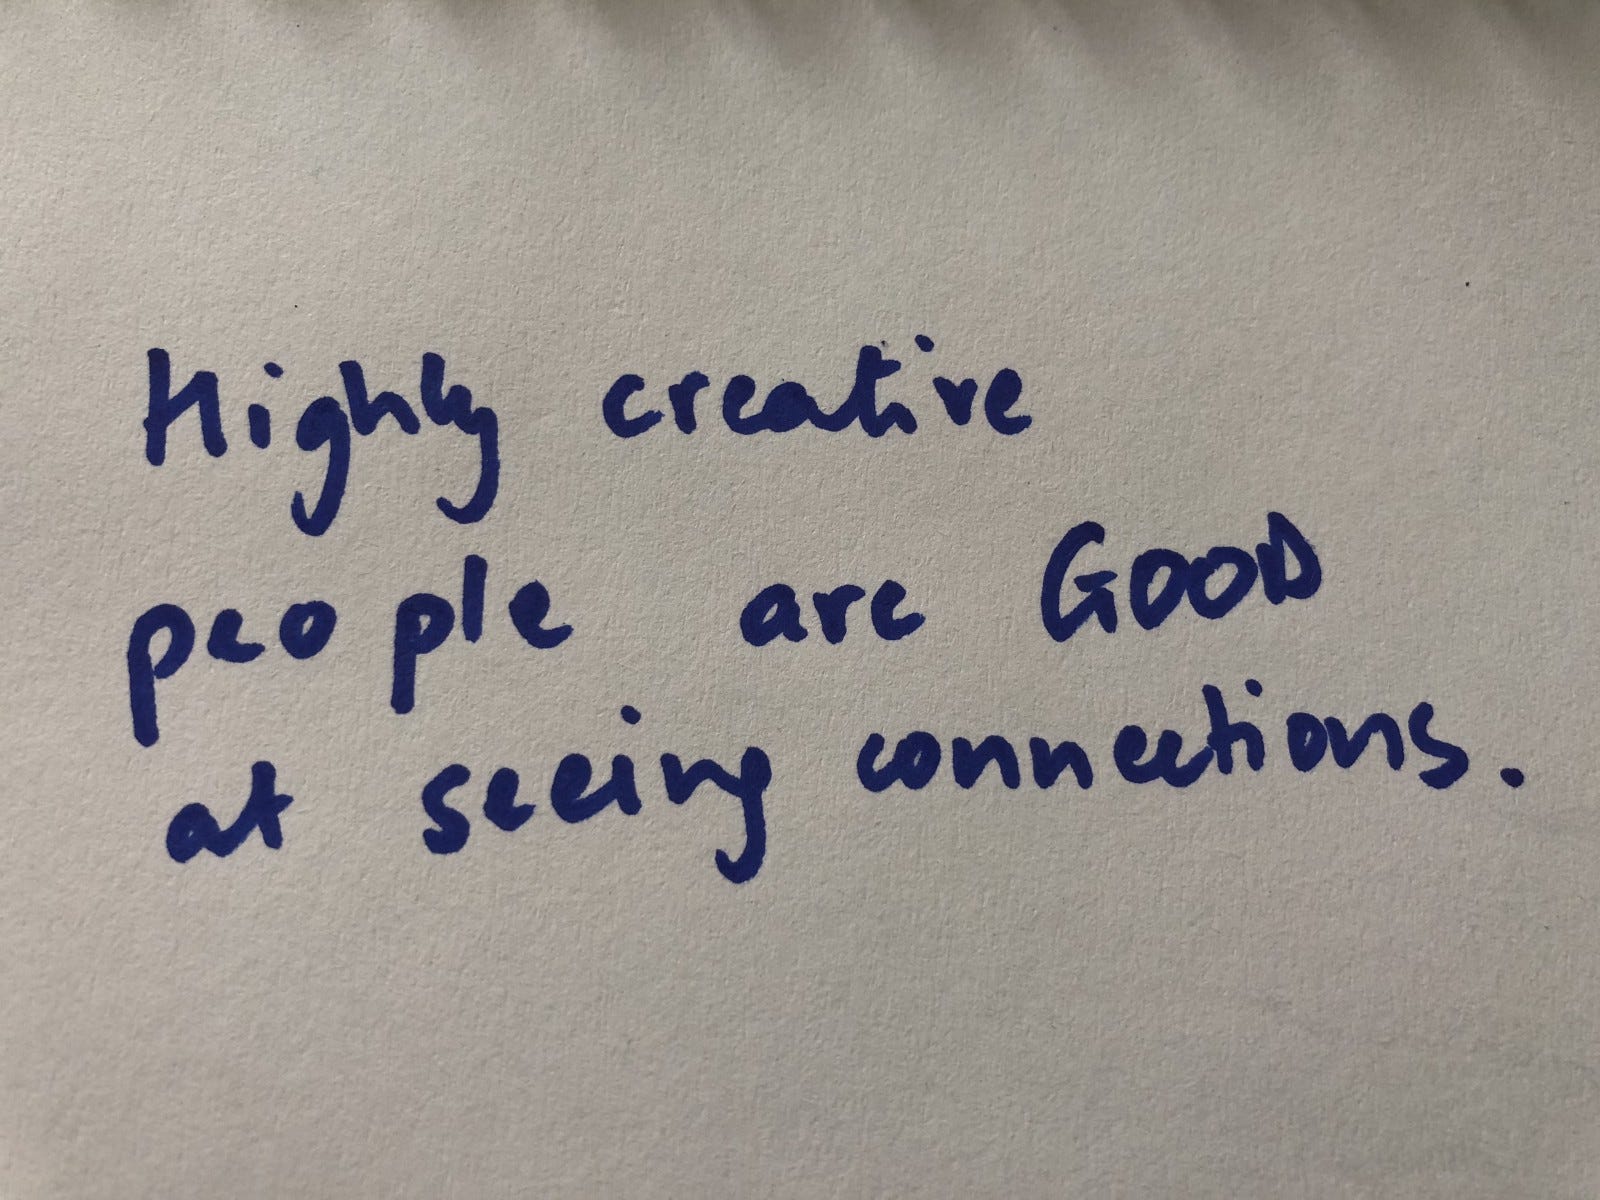 Highly creative
people are GOOD
at seeing connections.